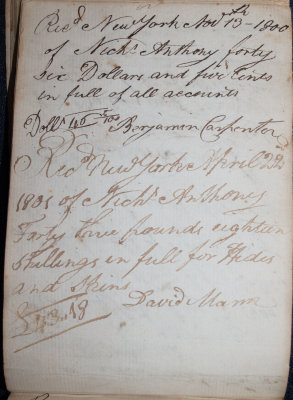 Recd New York Novr 13th 1800
of Nichs Anthony forty
six Dollars and five Cents
in full of all accounts
Dolls 46 5/100 Benjamin Carpenter
Recd New York April 22d
1801 of Nichs Anthony
Forty three pounds eighteen
Shillings in full for Hides
and Skins
£43..18 David Mann